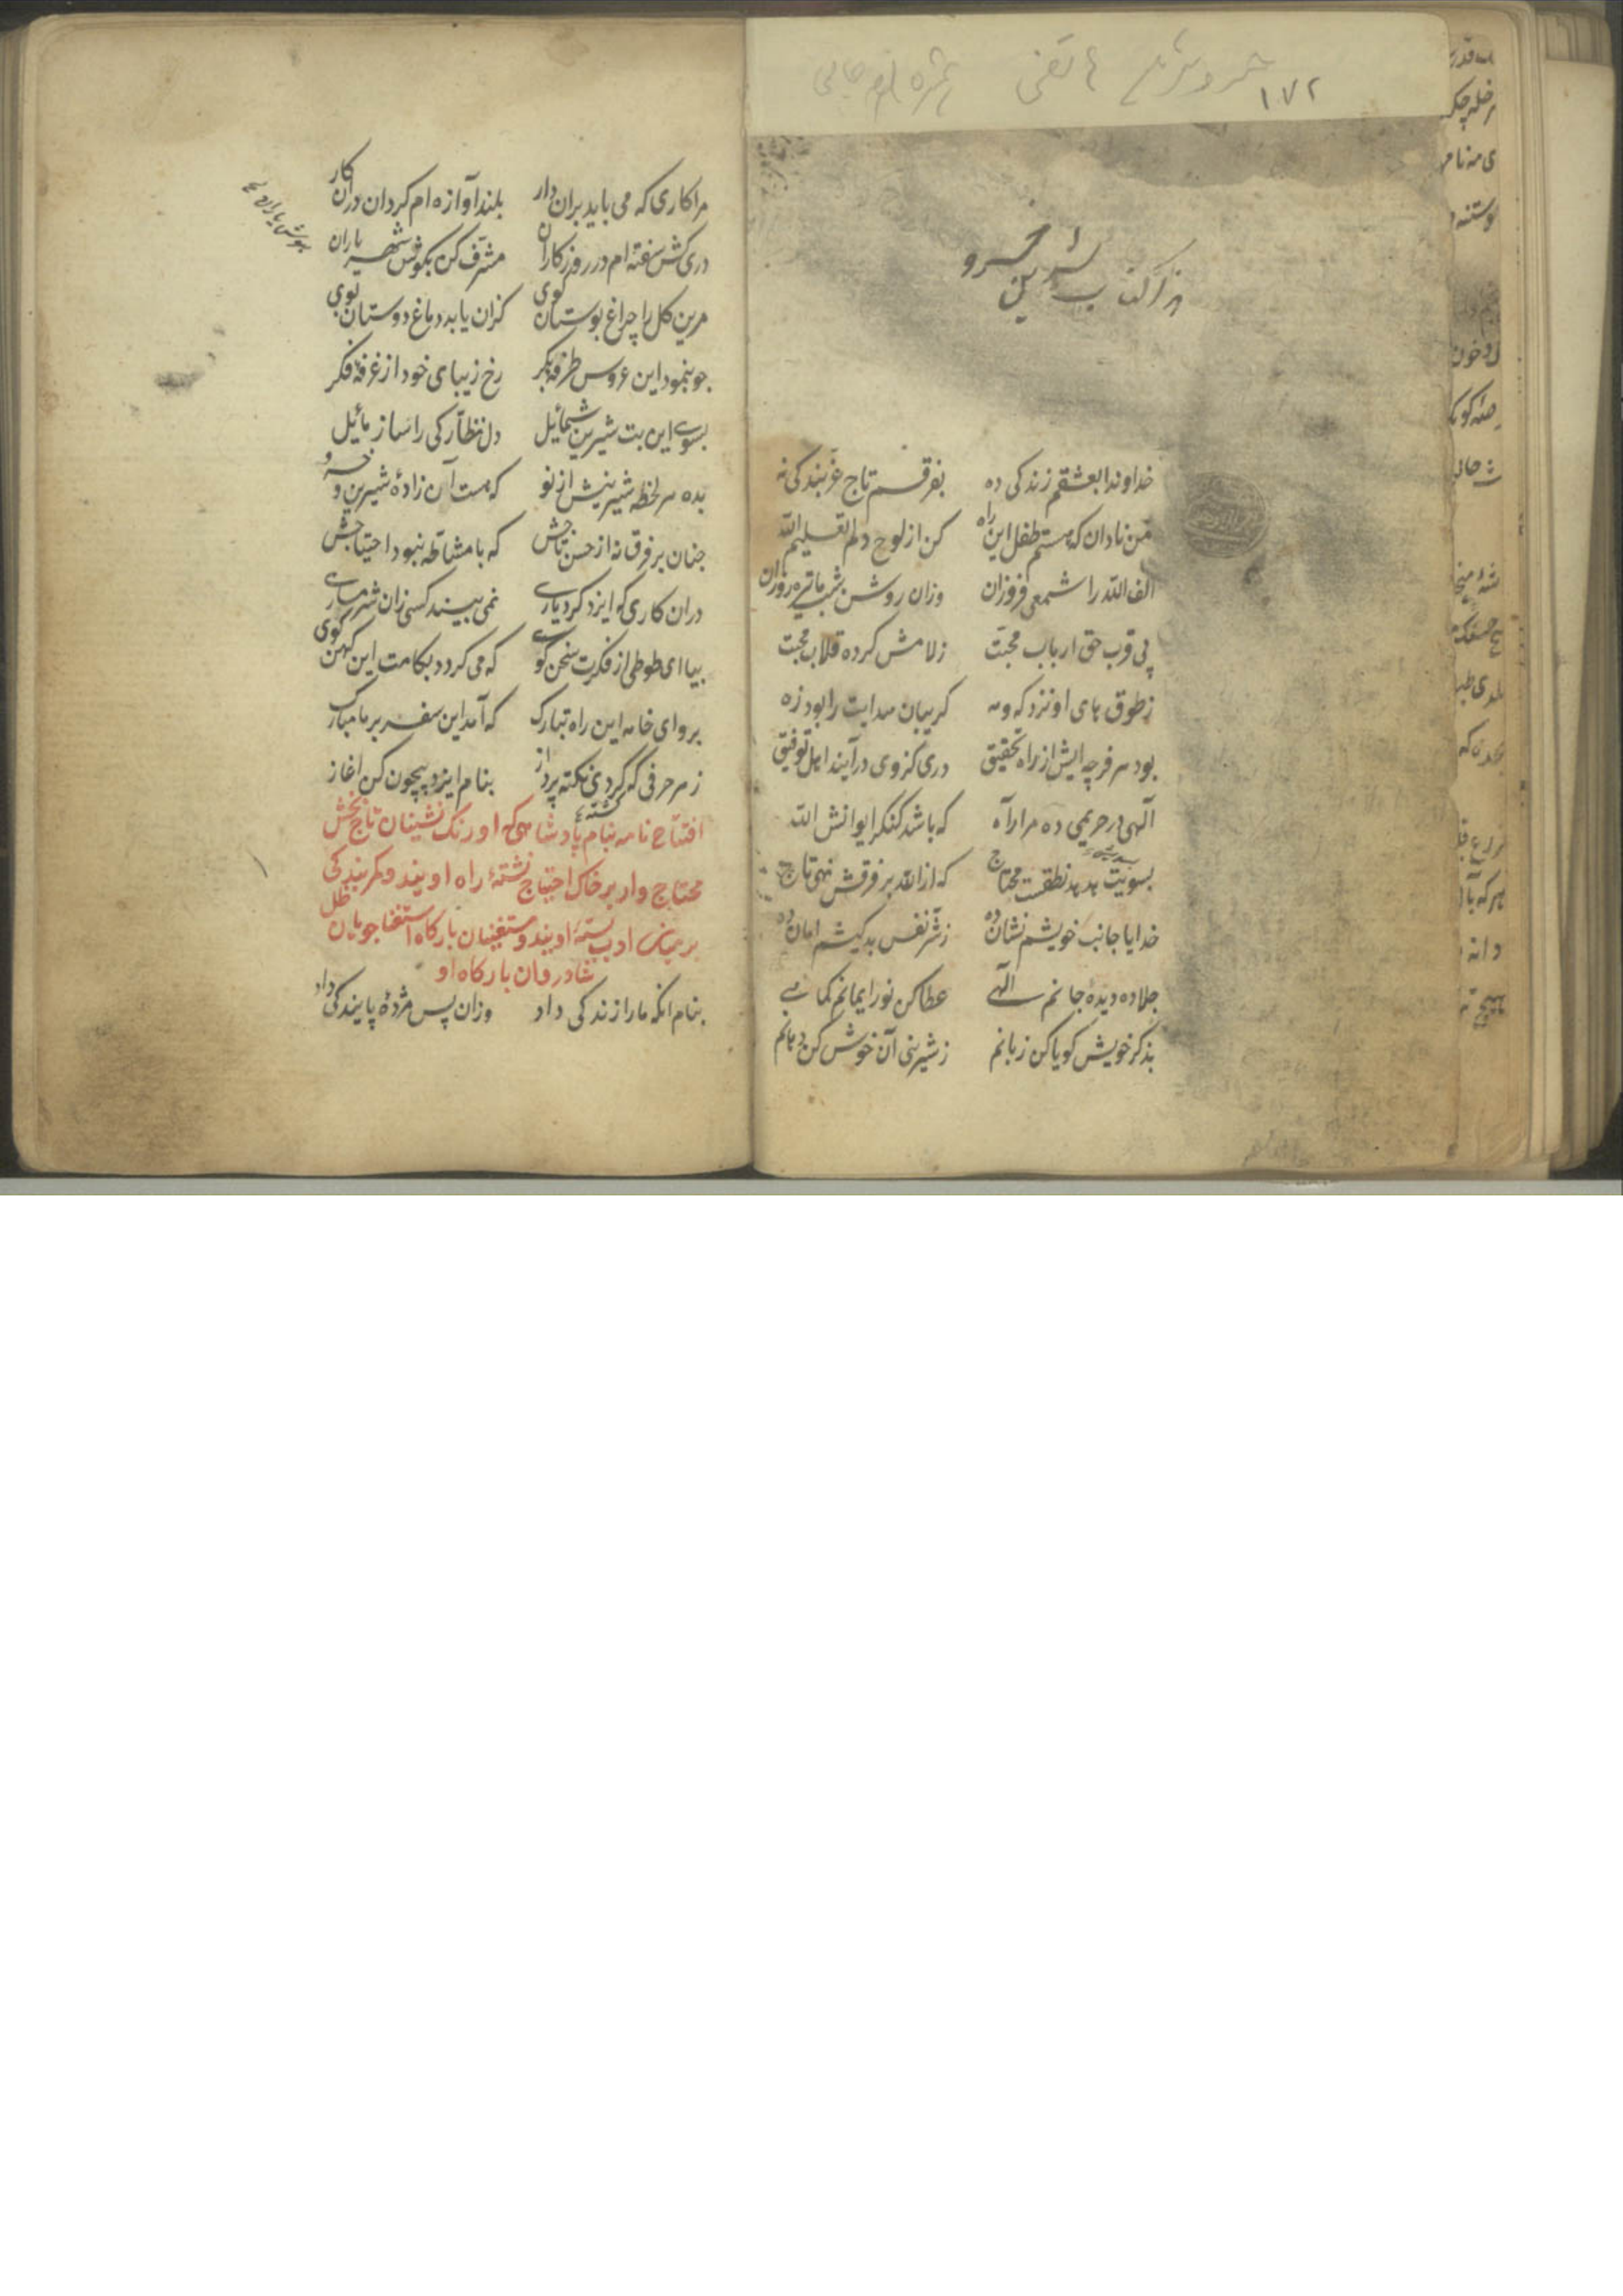 ١٧٢
هذا کتاب شیرین خسرو
خداوندا بعشقم زندکی ده بفرقم تاج عز بندکی نه
من نادان که هستم طفل این راه کن از لوح دلم تعلیم الله
الف الله را شمعی فروزان وزان روشن شب ما تیره روزان
پی قرب حق ارباب محبت ز لامش کرده قلاب محبت
ز طوق های او نزد که و مه کریبان هدایت را بود زه
بود هر فرجه ایش از راه تحقیق دری کز وی درآیند اهل توفیق
آلهی در حریمی ده مرا راه که باشد کنکر ایوانش الله
بسویت هدهد نطقست محتاج که از الله بر فرقش نهی تاج
خدایا جانب خویشم نشان ده ز شر نفس بدکیشم امان ده
جلا ده دیدهٔ جانم الهی عطا کن نور ایمانم کماهی
بذکر خویش کویا کن زبانم ز شیرینی آن خوش کن دهانم
مرا کاری که می باید بران دار بلند آوازه ام کردان دران کار
دری کش سفته ام در روزکاران مشرف کن بکوش شهریاران
مرین کل را چراغ بوستان کوی کزان یابد دماغ دوستان بوی
چو بنمود این عروس طرفهٔ بکر رخ زیبای خود از غرفهٔ فکر
بسوی این بت شیرین شمائیل دل نظارکی را ساز مائیل
بده هر لحظه شیرینیش از نو که هست آن زادهٔ شیرین و خسرو
چنان بر فرق نه از حسن تاجش که با مشاطه نبود احتیاجش
دران کاری که ایزد کرد یاری نمی بیند کسی زان شرمساری
بیا ای طوطی از فکرت سخن کوی که می کردد بکامت این کهن کوی
برو ای خامه این راه تبارک که آمد این سفر بر ما مبارک
ز هر حرفی که کردی نکته پرداز بنام ایزد بیچون کن اغاز
افتتاح نامه بنام پادشاهی که اورنک نشینان تاج بخش
محتاج وار بر خاک احتیاج نشستهٔ راه اویند و کمر بندکی
بر میان ادب بستهٔ اویند و مستغنیان بارکاه استغنا جویان ظل
شادروان بارکاه او
بنام انکه ما را زندکی داد وزان پس مژدهٔ پایندکی داد